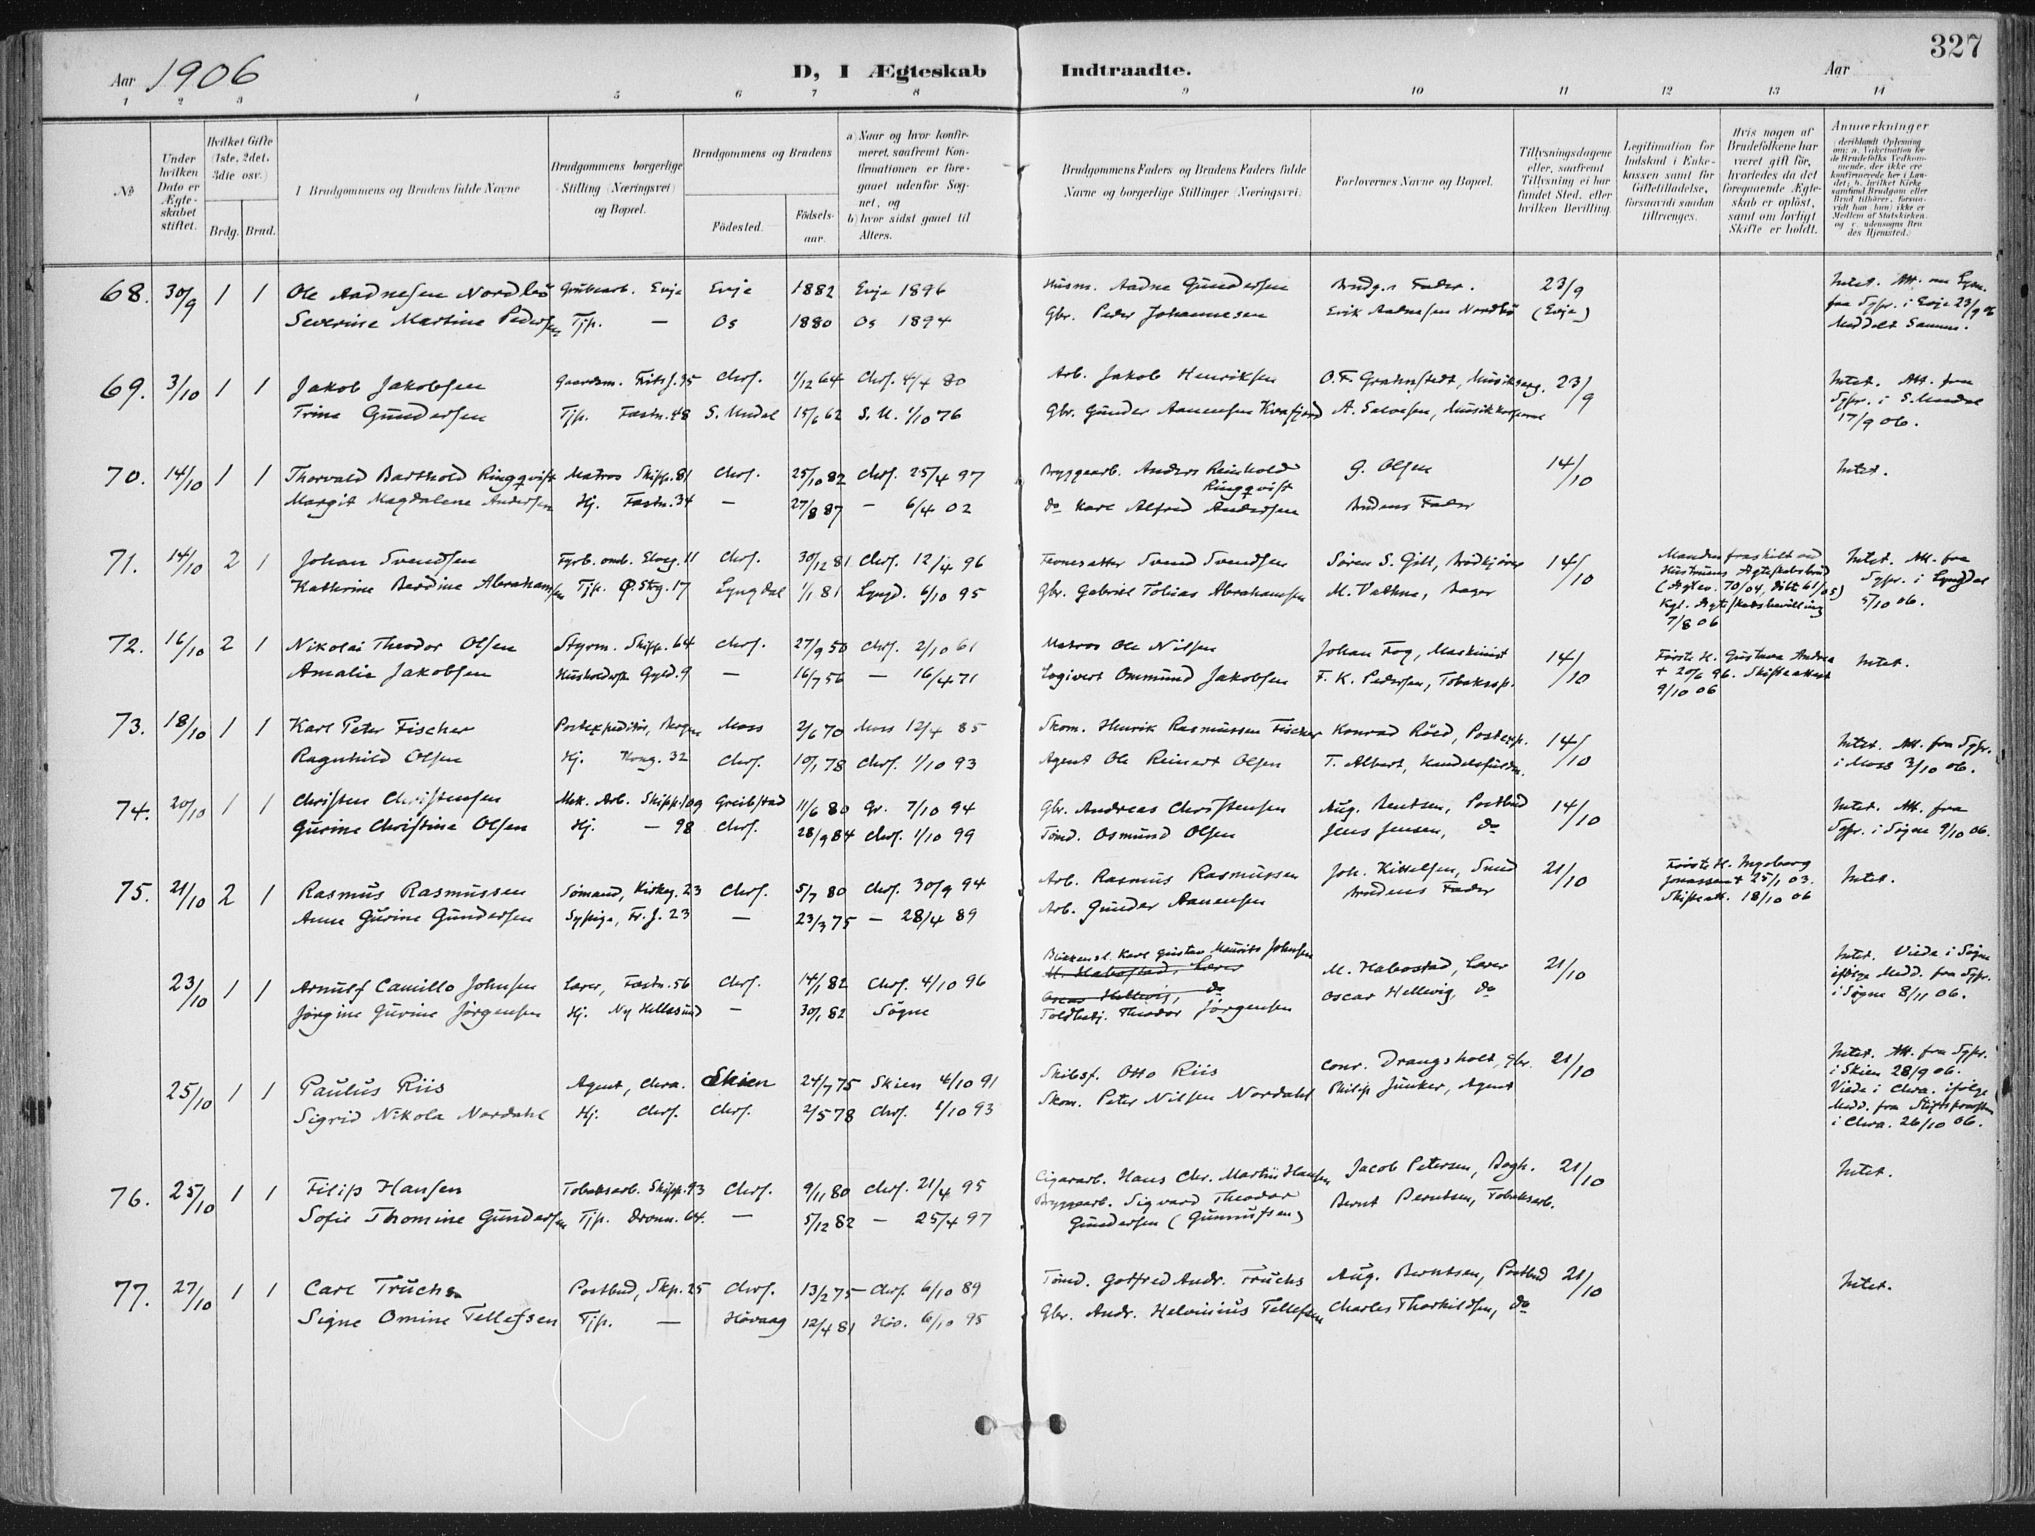 327
Aar 1906
D, I Ægteskab Indtraadte.
Aar
1 2 3 4 5 6 7 8 9 10 11 12 13 14
No
Under hvilken Dato er Ægteskabet stiftet.
Hvilket Gifte (1ste, 2det, 3die osv.)
Brdg. Brud.
Brudgommens og Brudens fulde Navne
Brudgommens borgerlige Stilling (Næringsvei) og Bopæl.
Brudgommens og Brudens
Födested. Födselsaar.
a) Naar og hvor konfirmeret, saafremt Konfirmationen er foregaaet udenfor Sognet, og
b) hvor sidst gaaet til Alters.
Brudgommens Faders og Brudens Faders fulde Navne og borgerlige Stillinger (Næringsvei).
Forlovernes Navne og Bopæl.
Tillysningsdagene eller, saafremt Tillysning ei har fundet Sted, efter hvilken Bevilling.
Legitimation for Indskud i Enkekassen samt for Giftetilladelse, forsaavidt saadan tiltrænges.
Hvis nogen af Brudefolkene har været gift för, hvorledes da det foregaaende Ægteskab er oplöst, samt om lovligt Skifte er holdt.
Anmærkninger
68. 30/9 1 1 Ole Aadnesen Nordbö Grubearb. Evje Evje 1882 Evje 1896 Husm. Aadne Gundersen Brudg.s Fader. 23/9 Intet. Att. om Lysn.
Severine Martine Pedersen Tjp. — Os 1880 Os 1894 Gbr. Peder Johannesen Erik Aadnesen Nordbö (Evje) fra Spr. i Evje 23/9 06
Meddelt Samme.
69. 3/10 1 1 Jakob Jakobsen Gaardm. Fritsj. 95 Chrs. 1/12 64 Chrs. 4/4 80 Arb. Jakob Henriksen O. F. Grahnstedt, Musikserg. 23/9 Intet. Att. fra
Trine Gundersen Tjp. Fastn. 48 S. Undal 15/6 62 S. U. 1/10 76 Gbr. Gunder Aanensen Kvafjord A. Salvesen, Musikkorporal Spr. i S. Undal
17/9 06.
70. 14/10 1 1 Thorvald Barthold Ringqvist Matros Skipp. 81 Chrs. 25/10 82 Chrs. 25/4 97 Bryggearb. Anders Reinhold Ringqvist G. Olsen 14/10 Intet.
Margit Magdalene Andersen Hj. Fastn. 34 — 27/8 87 — 6/4 02 do Karl Alfred Andersen Brudens Fader
71. 14/10 2 1 Johan Svendsen Fyrb. omb. Elveg. 11 Chrs. 30/12 81 Chrs. 12/4 96 Svend Svendsen Søren S. Gill, Brödkjörer 14/10 Manden fraskilt ved Intet. Att. fra
Kathrine Berdine Abrahamsen Tjp. Ø. Stg. 17 Lyngdal 1/1 81 Lyngd. 6/10 95 Gbr. Gabriel Tobias Abrahamsen M. Vathne, Bager Hustruens Ægteskabsbrud Spr. i Lyngdal
5/10 06.
Kgl. Ægteskabsbevilling
7/8 06
72. 16/10 2 1 Nikolai Theodor Olsen Styrm. Skipp. 64 Chrs. 27/9 50 Chrs. 2/10 61 Matros Ole Nilsen Johan Fog, Maskinist 14/10 Förste H. Gustava Andrea Intet.
Amalie Jakobsen Husholdersk Gyld. 9 — 16/7 56 — 16/4 71 Logivert Ommund Jakobsen F. K. Pedersen, Tobaksp. + 20/6 96. Skifteattest
9/10 06
73. 18/10 1 1 Karl Peter Fischer Postexpeditör, Bergen Moss 2/6 70 Moss 12/4 85 Skom. Henrik Rasmussen Fischer Konrad Röed, Postexp. 14/10 Intet. Att. fra Spr.
Ragnhild Olsen Hj. Kong. 32 Chrs. 10/1 78 Chrs. 1/10 93 Agent Ole Reinert Olsen T. Albert, Handelsfuldm. i Moss 3/10 06.
74. 20/10 1 1 Christen Christensen Mek. Arb. Skipp. 109 Greibstad 11/6 80 Gr. 7/10 94 Gbr. Andreas Christensen Aug. Berntsen, Postbud 14/10 Intet. Att. fra
Gurine Christine Olsen Hj. — 98 Chrs. 28/9 84 Chrs. 1/10 99 Tömd. Osmund Olsen Jens Jensen, do Spr. i Søgne 9/10 06.
75. 21/10 2 1 Rasmus Rasmussen Sömand, Kirkeg. 23 Chrs. 5/7 80 Chrs. 30/9 94 Arb. Rasmus Rasmussen Joh. Kittelsen, Smed 21/10 Förste H. Ingeborg Intet.
Anne Gurine Gundersen Sypige, Fr. J. 23 — 23/3 75 — 28/4 89 Arb. Gunder Aanensen Brudens Fader Jonassen + 25/1 03.
Skifteatt. 18/10 06
23/10 1 1 Arnulf Camillo Johnsen Lærer, Fastn. 56 Chrs. 14/1 82 Chrs. 4/10 96 Blikkensl. Karl Gustav Maurits Johnsen M. Habostad, Lærer 21/10 Intet. Viede i Søgne
M. Habostad, Lærer
Oscar Hellevig, do Oscar Hellevig, do ifölge Medd. fra Spr.
Jørgine Gurine Jørgensen Hj. Ny Hellesund — 30/1 82 Søgne Toldbetj. Theodor Jørgensen i Søgne 8/11 06.
25/10 1 1 Paulus Riis Agent, Chra. Skien 24/7 75 Skien 4/10 91 Skibsf. Otto Riis Conr. Drangsholt, Gbr. 21/10 Intet. Att. fra Spr.
i Skien 28/9 06.
Sigrid Nikola Nordahl Hj. Chrs. Chrs. 2/5 78 Chrs. 1/10 93 Skom. Peter Nilsen Nordahl Philip Junker, Agent Viede i Chra. ifölge
Medd. fra Stiftsprovsten
i Chra. 26/10 06.
76. 25/10 1 1 Filip Hansen Tobaksarb. Skipp. 93 Chrs. 9/11 80 Chrs. 21/4 95 Cigararb. Hans Chr. Martin Hansen Jacob Petersen, Bogh. 21/10 Intet.
Sofie Thomine Gundersen Tjp. Dronn. 64. — 5/12 82 — 25/4 97 Bryggearb. Sigvard Theodor Gundersen (Gunnufsen) Bernt Berntsen, Tobaksarb.
77. 27/10 1 1 Carl Truchs Postbud, Skp. 25 Chrs. 13/2 75 Chrs. 6/10 89 Tömd. Gotfred Andr. Fruchs Aug. Berntsen, Postbud 21/10 Intet.
Signe Omine Tellefsen Tjp. — Høvaag 12/4 81 Höv. 6/10 95 Gbr. Andr. Helvinius Tellefsen Charles Thorkildsen, do